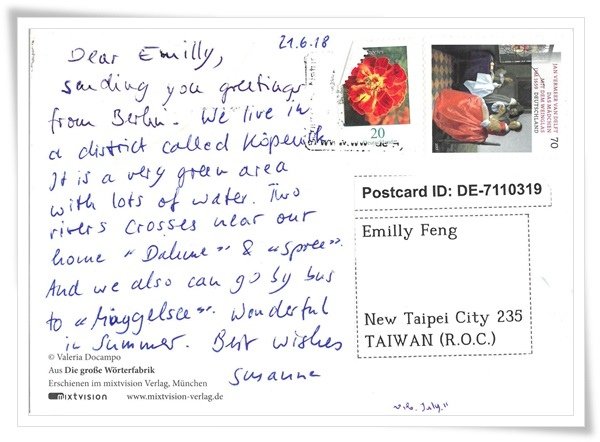 21.6.18
Dear Emilly,
sending you greetings
from Berlin. We live in
a district called Köpenik
It is a very green area
with lots of water. Two
rivers crosses near our
home "Dahme" & "Spree".
And we also can go by bus
to "Müggelsee". Wonderful
in Summer. Best wishes
Susanne
© Valeria Docampo
Aus Die große Wörterfabrik
Erschienen im mixtvision Verlag, München
mixtvision www.mixtvision-verlag.de
20
JAN VERMEER VAN DELFT
DAS MÄDCHEN
MIT DEM WEINGLAS
UM 1659 DEUTSCHLAND
70
Postcard ID: DE-7110319
Emilly Feng
New Taipei City 235
TAIWAN (R.O.C.)